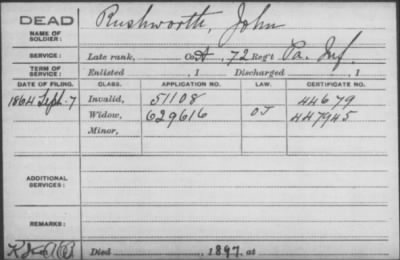 DEAD Rushworth, John
NAME OF SOLDIER:
SERVICE: Late rank, Co. A, 72 Reg't Pa. Inf.
TERM OF SERVICE: Enlisted , 1 Discharged , 1
DATE OF FILING. CLASS. APPLICATION NO. LAW. CERTIFICATE NO.
1864 Sept. 7 Invalid, 51108 44679
Widow, 629616 447945
Minor,
ADDITIONAL SERVICES:
REMARKS:
Died , 1897. at